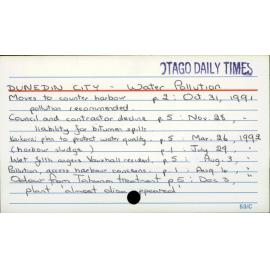 OTAGO DAILY TIMES
DUNEDIN CITY - Water Pollution
Moves to counter harbour p.2 : Oct. 31, 1991
pollution recommended.
Council and contractor decline p.5 : Nov. 28, "
liability for bitumen spills
Kaikorai plan to protect water quality p.5 : Mar. 26, 1992
(harbour sludge) p.1 : July 29, "
Inlet filth angers Vauxhall resident, p.5 : Aug. 3, "
Pollution, access harbour concerns. p.1 : Aug. 6, "
Odour from Tahuna treatment p.5 : Dec. 3, "
plant 'almost disappeared'
53/C